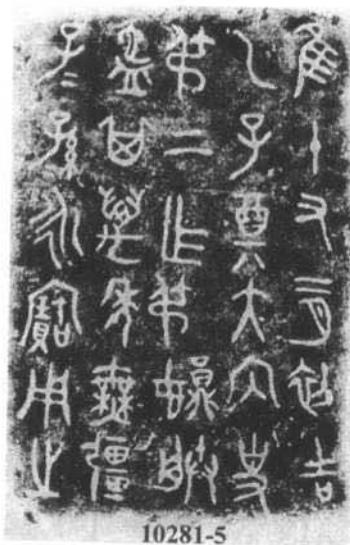 隹十又二月初吉
乙子奠大内史
弔上乍弔朕
匜其萬年無疆
子=孫=永寶用之
10281-5